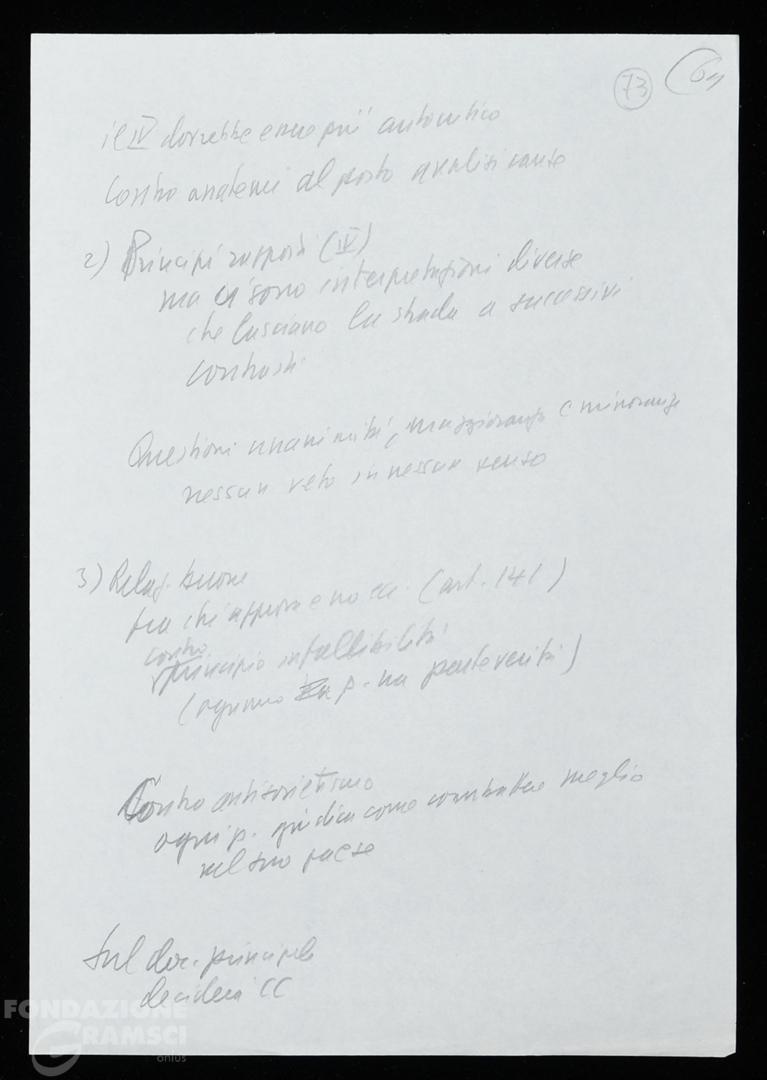 73
il IV dovrebbe essere più autocritico
Contro anatemi al posto analisi cause
2) Principi rapporti (IV)
ma ci sono interpretazioni diverse
che lasciano la strada a successivi
contrasti
Questioni unanimità, maggioranza e minoranza
nessun veto in nessun senso
3) Relaz. buone
tra chi approva e no ecc. (art. 141)
contro
principio infallibilità
(ognuno p. ha parte verità)
Contro antisovietismo
ogni p. giudica come combattere meglio
nel suo paese
Sul doc. principale
deciderà CC
FONDAZIONE
GRAMSCI
onlus